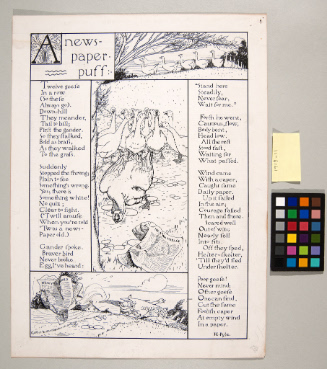 A news-
paper
puff.
Twelve geese
In a row
(So these
Always go).
Down-hill
They meander,
Tail to bill;
First the gander.
So they stalked,
Bold as brass
As they walked
To the grass.
Suddenly
Stopped the throng;
Plain to see
Something's wrong.
Yes; there is
Something white!
No quiz;
Clear to sight.
('Twill amuse
When you're told
'Twas a news-
Paper old.)
Gander spoke.
Braver bird
Never broke
Egg, I've heard:
"Stand here
Steadily,
Never fear,
Wait for me."
Forth he went,
Cautious, slow,
Body bent,
Head low.
All the rest
Stood fast,
Waiting for
What passed.
Wind came
With a caper,
Caught same
Daily paper.
Up it sailed
In the air;
Courage failed
Then and there.
Scared well
Out of wits;
Nearly fell
Into fits.
Off they sped,
Helter-skelter,
'Till they'd fled
Under shelter.
Poor geese!
Never mind;
Other geese
One can find,
Cut the same
Foolish caper
At empty wind
In a paper.
H. Pyle.